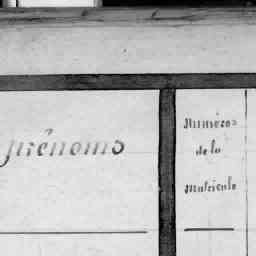 prénoms
Numéros
de la
matricule